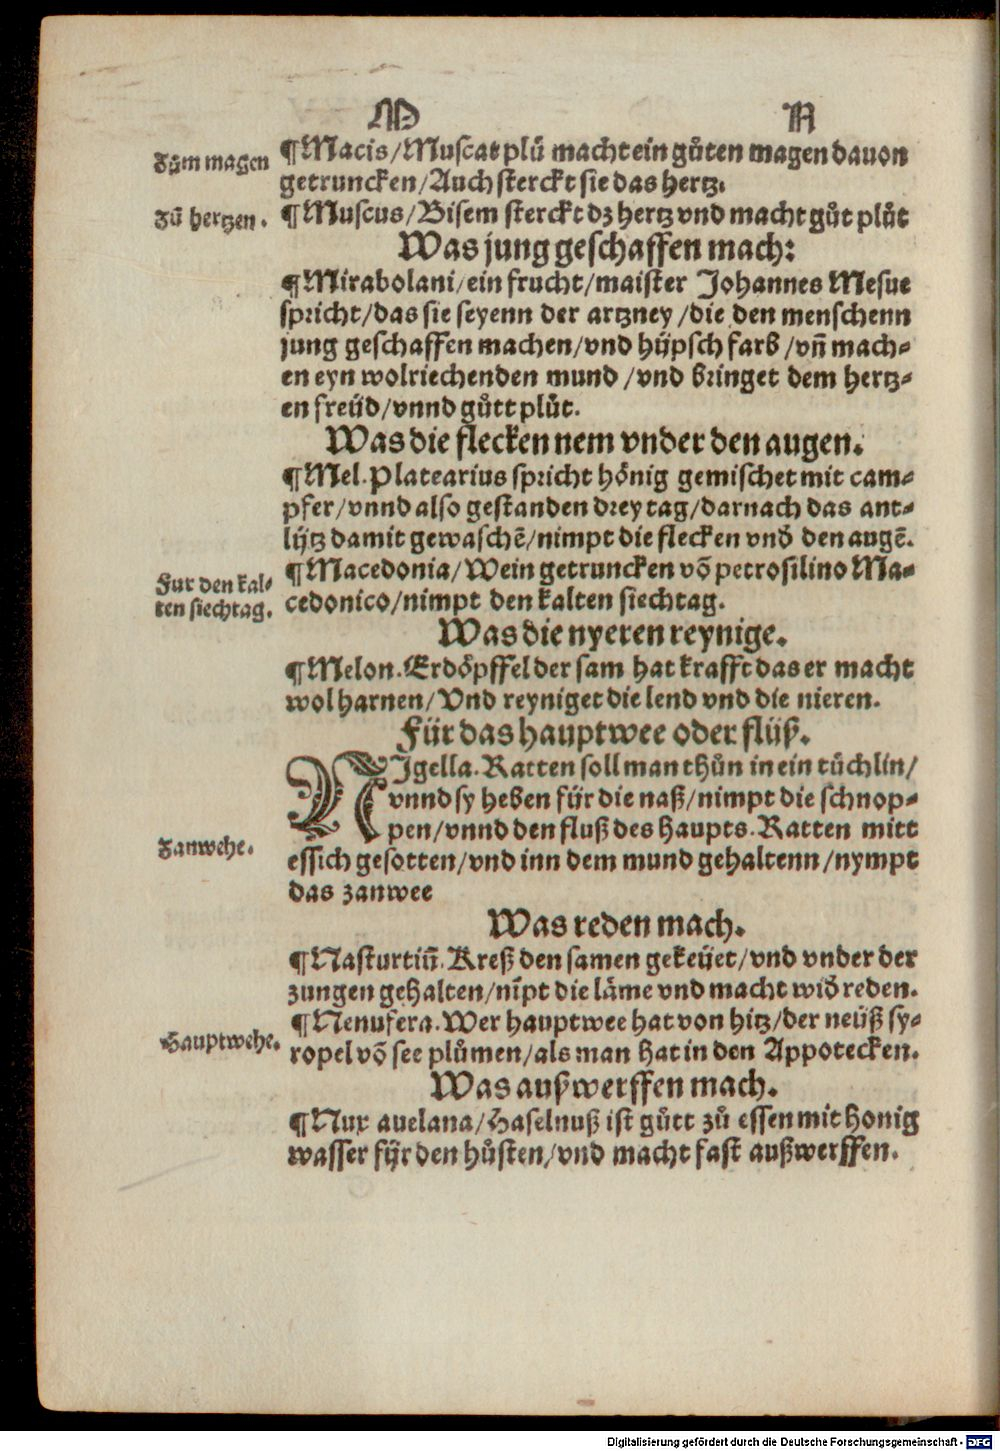 M N
Zům magen
¶Macis/Muscat plů macht ein gůten magen dauon
getruncken/Auch sterckt sie das hertz.
Zů hertzen.
¶Muscus/Bisem sterckt dz hertz vnd macht gůt plůt
Was jung geschaffen mach:
¶Mirabolani/ein frucht/maister Johannes Mesue
spricht/das sie seyenn der artzney/die den menschenn
jung geschaffen machen/vnd hüpsch farb/vñ mach⸗
en eyn wolriechenden mund/vnd bringet dem hertz⸗
en freüd/vnnd gůtt plůt.
Was die flecken nem vnder den augen.
¶Mel. Platearius spricht hönig gemischet mit cam⸗
pfer/vnnd also gestanden drey tag/darnach das ant⸗
lÿtz damit gewaschē/nimpt die flecken vnď den augē.
Fur den kal⸗
ten siechtag.
¶Macedonia/Wein getruncken võ petrosilino Ma⸗
cedonico/nimpt den kalten siechtag.
Was die nyeren reynige.
¶Melon. Erdöpffel der sam hat krafft das er macht
wol harnen/Vnd reyniget die lend vnd die nieren.
Für das hauptwee oder flüß.
NIgella. Ratten soll man thůn in ein tüchlin/
vnnd sy heben für die naß/nimpt die schnop⸗
pen/vnnd den fluß des haupts. Ratten mitt
Zanwehe.
essich gesotten/vnd inn dem mund gehaltenn/nympt
das zanwee
Was reden mach.
¶Nasturtiū. Kreß den samen gekeüet/vnd vnder der
zungen gehalten/nīpt die läme vnd macht wiď reden.
Hauptwehe.
¶Nenufera. Wer hauptwee hat von hitz/der neüß sy⸗
ropel võ see plůmen/als man hat in den Appotecken.
Was außwerffen mach.
¶Nux auelana/Haselnuß ist gůtt zů essen mit honig
wasser fÿr den hůsten/vnd macht fast außwerffen.
Digitalisierung gefördert durch die Deutsche Forschungsgemeinschaft - DFG